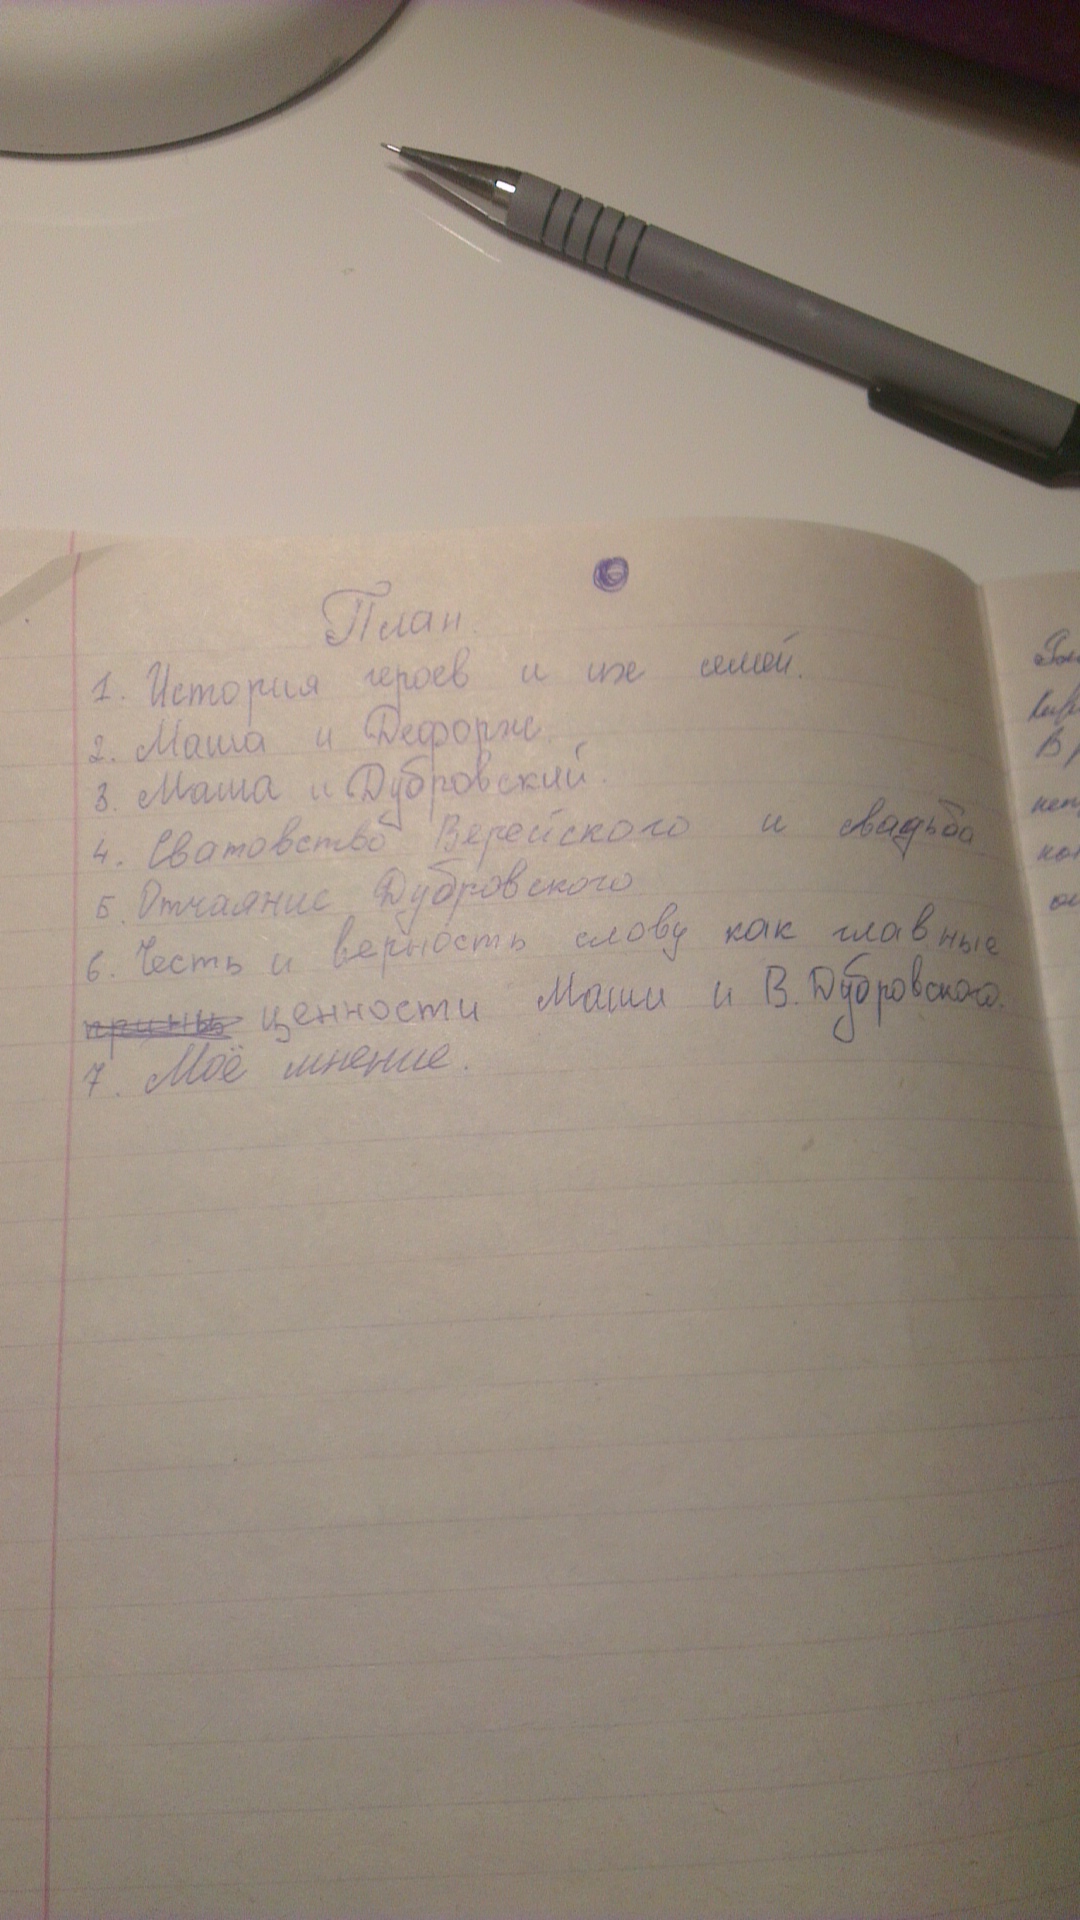 План.
1. История героев и их семей.
2. Маша и Дефорж.
3. Маша и Дубровский.
4. Сватовство Верейского и свадьба
5. Отчаяние Дубровского
6. Честь и верность слову как главные
ценности Маши и В. Дубровского.
7. Моё мнение.